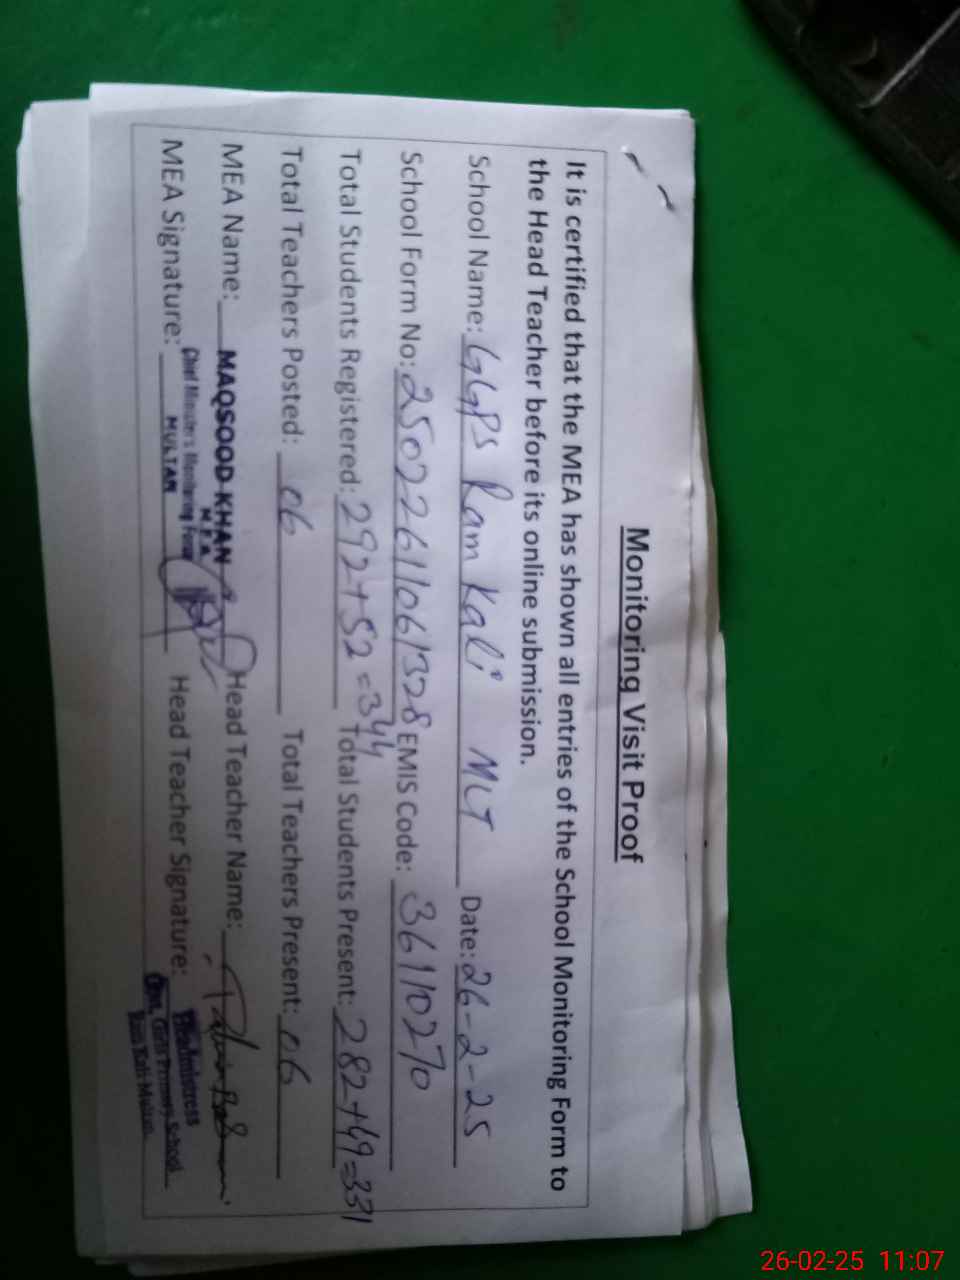 Monitoring Visit Proof
It is certified that the MEA has shown all entries of the School Monitoring Form to
the Head Teacher before its online submission.
School Name: GGPS Ram Kali MLT Date: 26-2-25
School Form No: 25022611061328 EMIS Code: 36110270
Total Students Registered: 292+52=344 Total Students Present: 282+49=331
Total Teachers Posted: 06 Total Teachers Present: 06
MEA Name: MAQSOOD KHAN Head Teacher Name:
M.E.A
MEA Signature: Chief Minister's Monitoring Force Head Teacher Signature: Headmistress
MULTAN Govt. Girls Primary School
Ram Kali Multan.
26-02-25 11:07